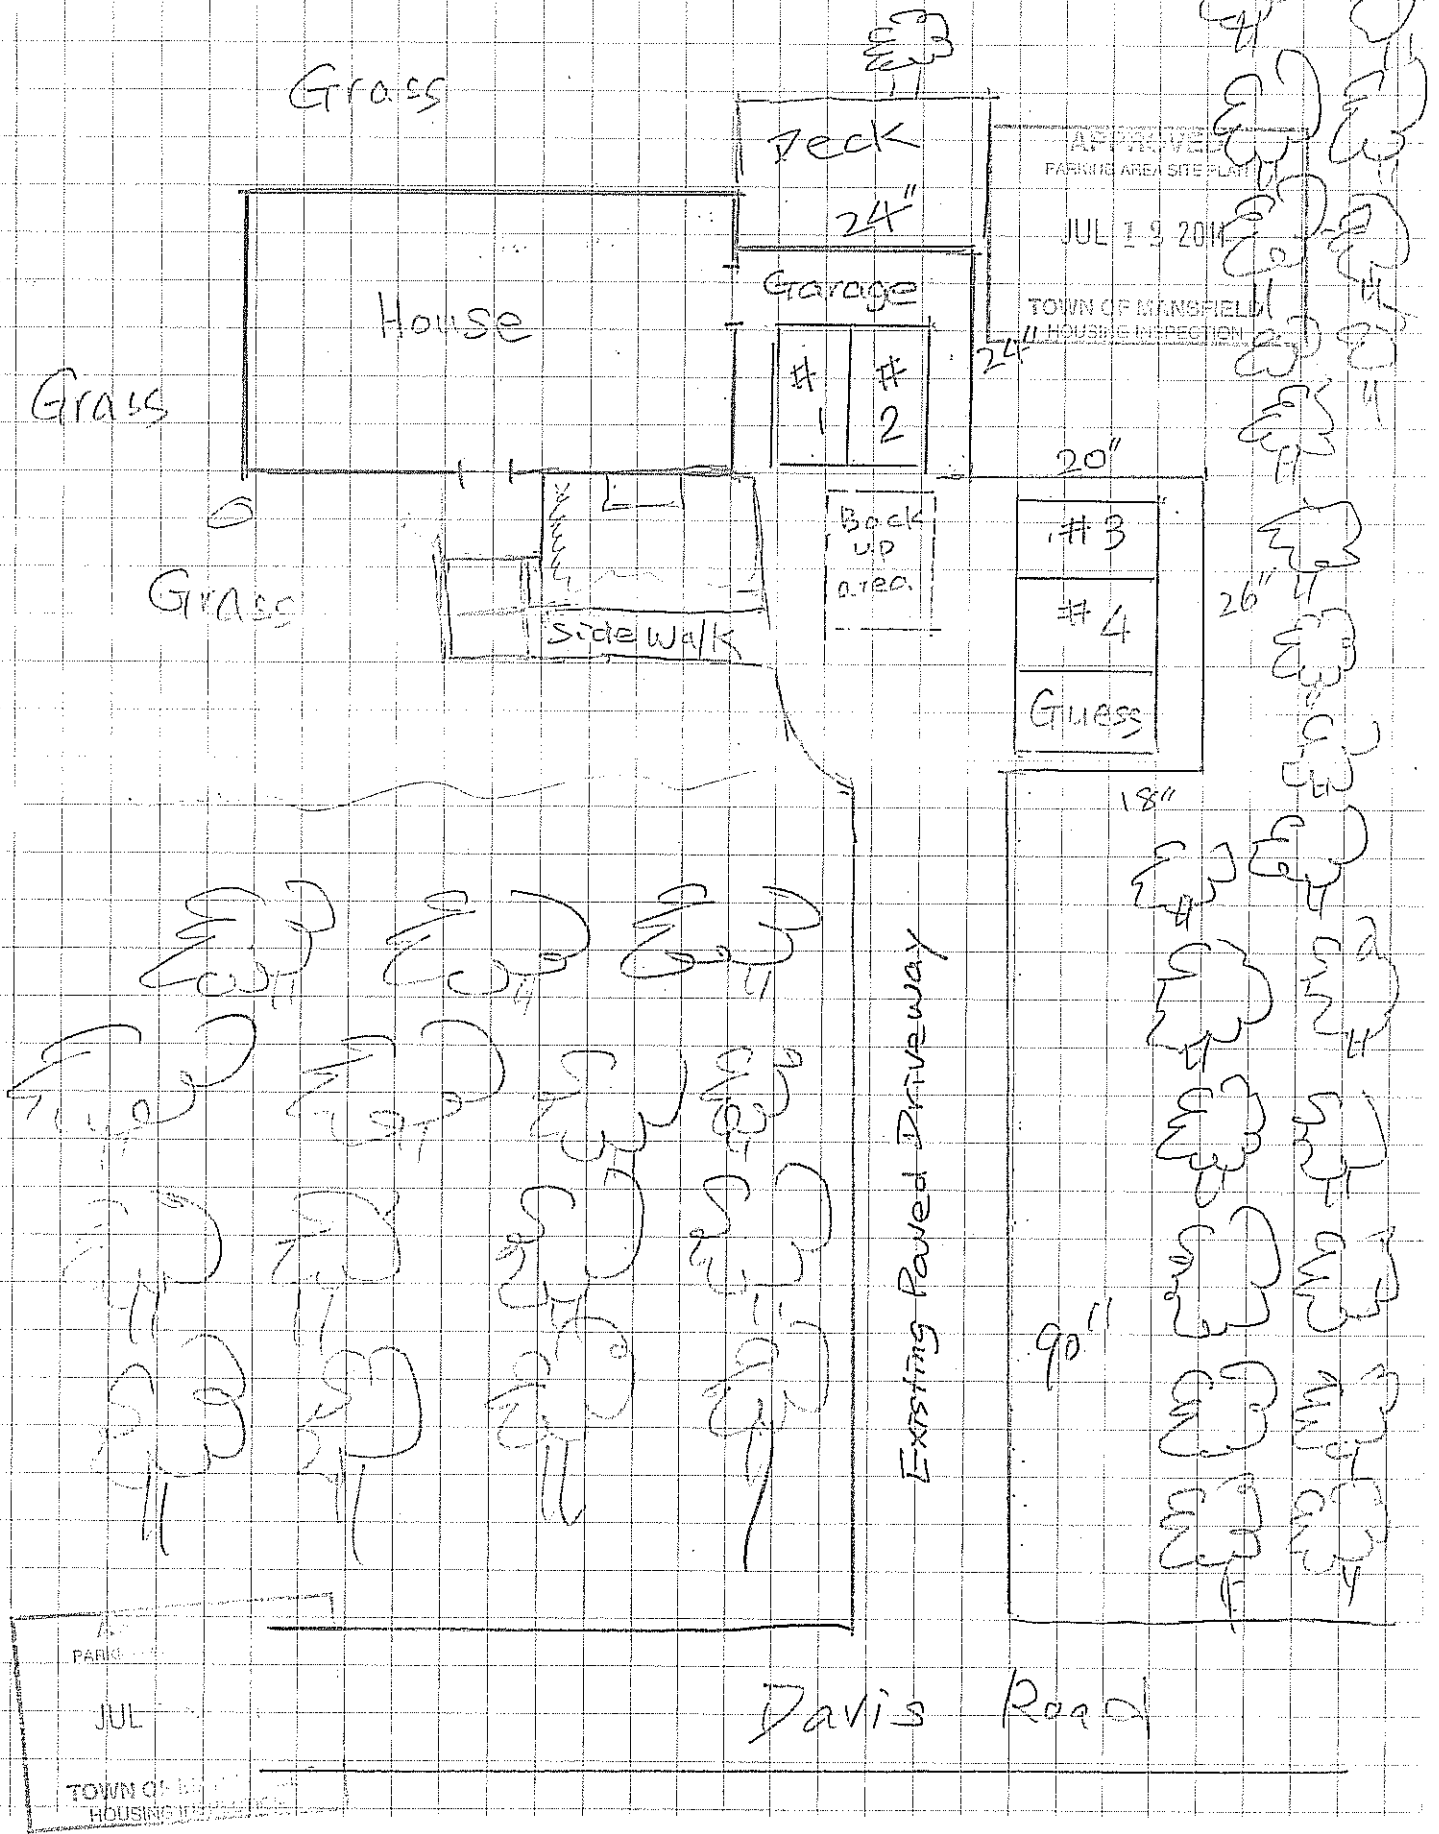 Grass
Deck
24"
APPROVED
PARKING AREA SITE PLAN
JUL 13 2011
TOWN OF MANSFIELD
HOUSING INSPECTION
House
Garage
24"
#1
#2
Grass
20"
#3
Back
up
area
#4
26"
Grass
Side Walk
Guess
18"
Existing Paved Driveway
90"
PARKI
JUL
TOWN OF
HOUSING
Davis Road